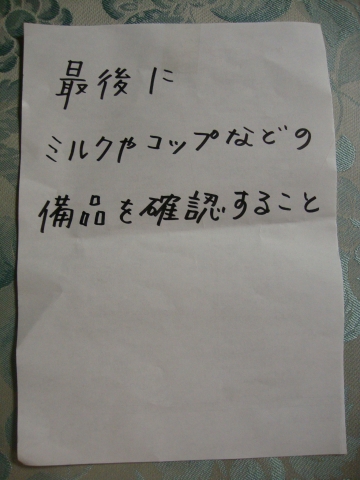 最後に
ミルクやコップなどの
備品を確認すること